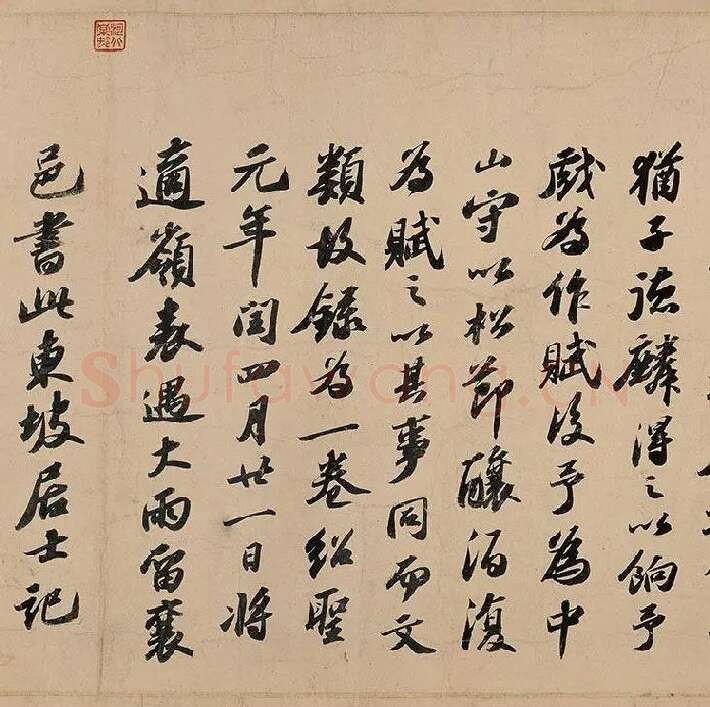 猶子德麟得之以餉予
戲為作賦後予為中
山守以松節釀酒復
為賦之以其事同而文
類故錄為一卷紹聖
元年閏四月廿一日將
適嶺表遇大雨留襄
邑書此東坡居士記
Shufawang.CN